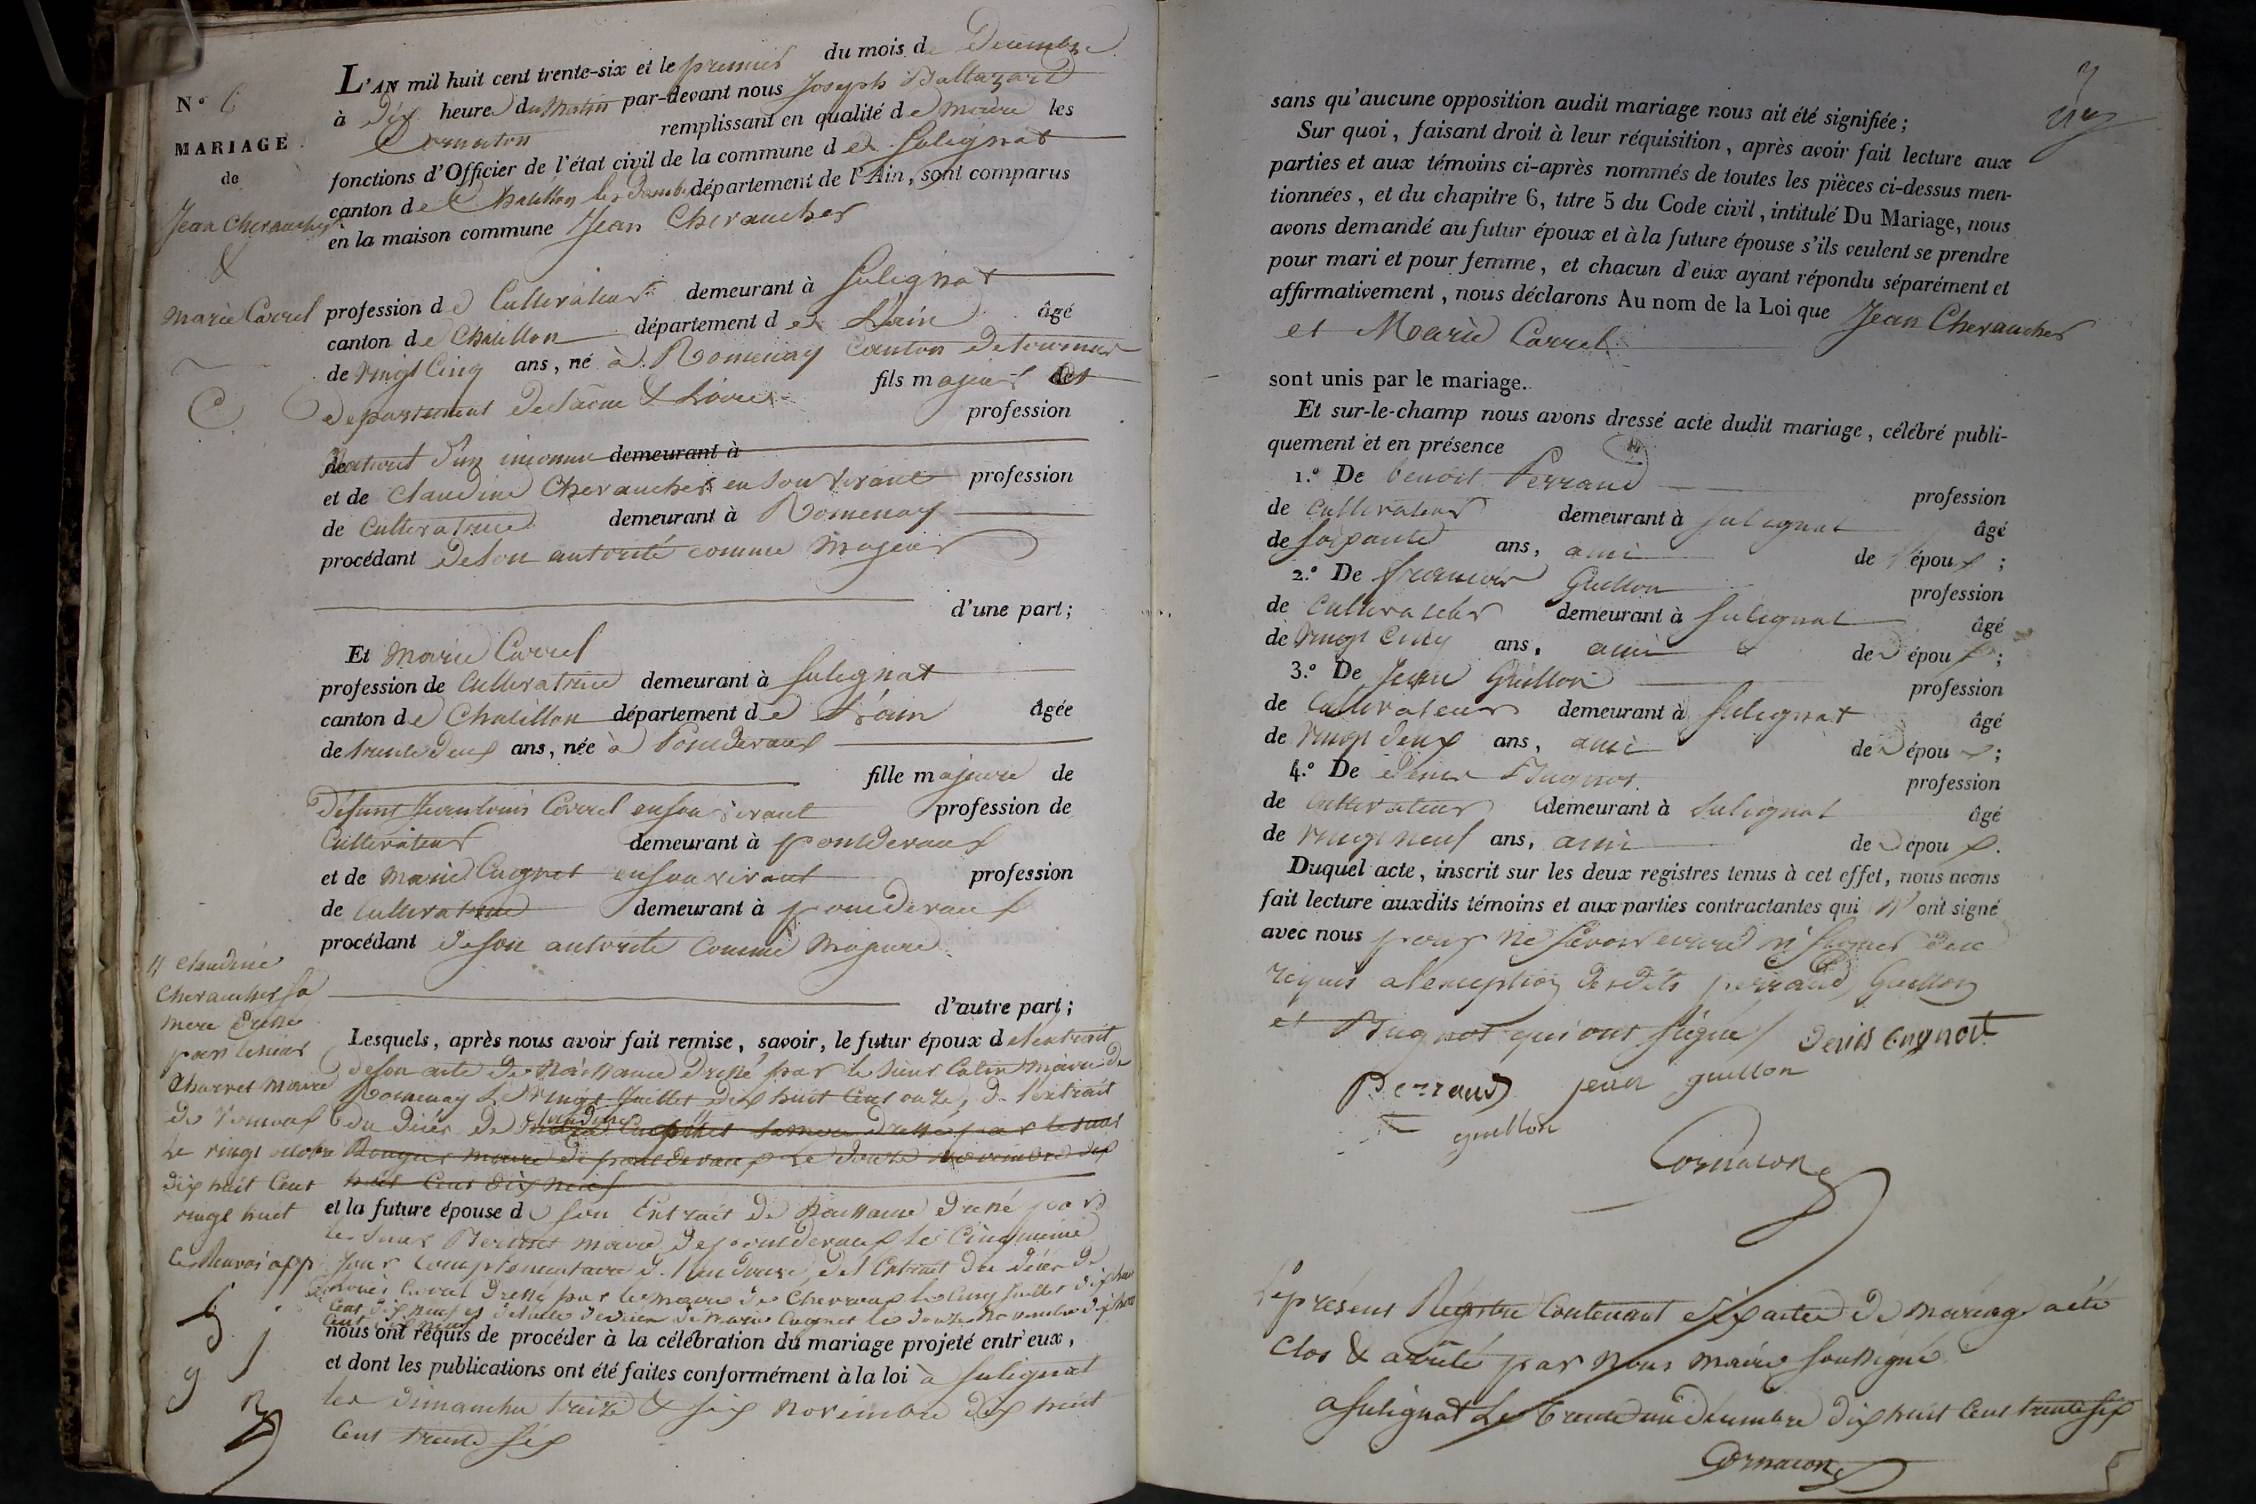 N° 6
MARIAGE
de
Jean Cheraucher
&
Marie Carrel
L'AN mil huit cent trente-six et le premier du mois de Decembre
à Dix heure du Matin par-devant nous Joseph Baltazard
Cornaton remplissant en qualité de maire les
fonctions d'Officier de l'état civil de la commune de Sulignat
canton de Chatillon les Dombes département de l'Ain, sont comparus
en la maison commune Jean Cheraucher
profession de Cultivateur demeurant à Sulignat
canton de Chatillon département de L'ain âgé
de vingt Cinq ans, né à Romenay Canton de tournus
departement de Saone & Loire fils majeur des
profession
de naturel d'un inconnu demeurant à
et de Claudine Cheraucher en son vivant profession
de Cultivatrice demeurant à Romenay
procédant de son autorité comme Majeur
d'une part;
Et Marie Carrel
profession de Cultivatrice demeurant à Sulignat
canton de Chatillon département de L'ain âgée
de trente deux ans, née à Pontdevaux
fille majeure de
Défunt Jean Louis Carrel en son vivant profession de
Cultivateur demeurant à pontdevaux
et de Marie Cugnet en son vivant profession
de Cultivatrice demeurant à pondevaux
procédant de son autorité Comme Majeure
d'autre part;
Lesquels, après nous avoir fait remise, savoir, le futur époux de l'extrait
de son acte de Naissance dressé par le Sieur Colin Maire de
Romenay Le Vingt Juillet dix huit Cent onze, de l'extrait
du décès de Claudine sa mere dressé par le sieur
maire de pontdevaux Le douze Novembre dix
huit Cent dix neuf
// Claudine
Cheraucher sa
mere dressé
par le sieur
Charvet maire
de
Le vingt octobre
dix huit Cent
vingt huit
Le Renvoi app
et la future épouse de son Extrait de Naissance dressé par
le Sieur maire de pontdevaux le Cinquième
Jour Complementaire de l'an douze, de l'Extrait du décès de
Carrel dressé par le maire de le Cinq Juillet dix huit
Cent dix neuf et de celle du décès de Marie Cugnet le douze Novembre dix huit
Cent dix neuf
nous ont requis de procéder à la célébration du mariage projeté entr'eux,
et dont les publications ont été faites conformément à la loi à Sulignat
les Dimanches treize & six Novembre dix huit
Cent trente six
sans qu'aucune opposition audit mariage nous ait été signifiée;
Sur quoi, faisant droit à leur réquisition, après avoir fait lecture aux
parties et aux témoins ci-après nommés de toutes les pièces ci-dessus men-
tionnées, et du chapitre 6, titre 5 du Code civil, intitulé Du Mariage, nous
avons demandé au futur époux et à la future épouse s'ils veulent se prendre
pour mari et pour femme, et chacun d'eux ayant répondu séparément et
affirmativement, nous déclarons Au nom de la Loi que Jean Cheraucher
et Marie Carrel
sont unis par le mariage.
Et sur-le-champ nous avons dressé acte dudit mariage, célébré publi-
quement et en présence
1.° De benoit Perraud profession
de cultivateur demeurant à Sulignat âgé
de soixante ans, ami de l'époux;
2.° De francois Guillon profession
de Cultivateur demeurant à Sulignat âgé
de vingt cinq ans, ami de époux;
3.° De Jean Guillon profession
de Cultivateur demeurant à Sulignat âgé
de vingt deux ans, ami de époux;
4.° De denis Bugnot profession
de Cultivateur demeurant à Sulignat âgé
de vingt neuf ans, ami de époux.
Duquel acte, inscrit sur les deux registres tenus à cet effet, nous avons
fait lecture auxdits témoins et aux parties contractantes qui n'ont signé
avec nous pour ne savoir écrire ni signer de ce
requis a l'exception desdits perraud Guillon
et Bugnot qui ont signé/
Perraud jean guillon
guillon
Cornaton
Le présent Registre Contenant six actes de mariage a été
Clos & arrêté par Nous maire soussigné
a Sulignat Le trente un décembre dix huit Cent trente six
Cornaton